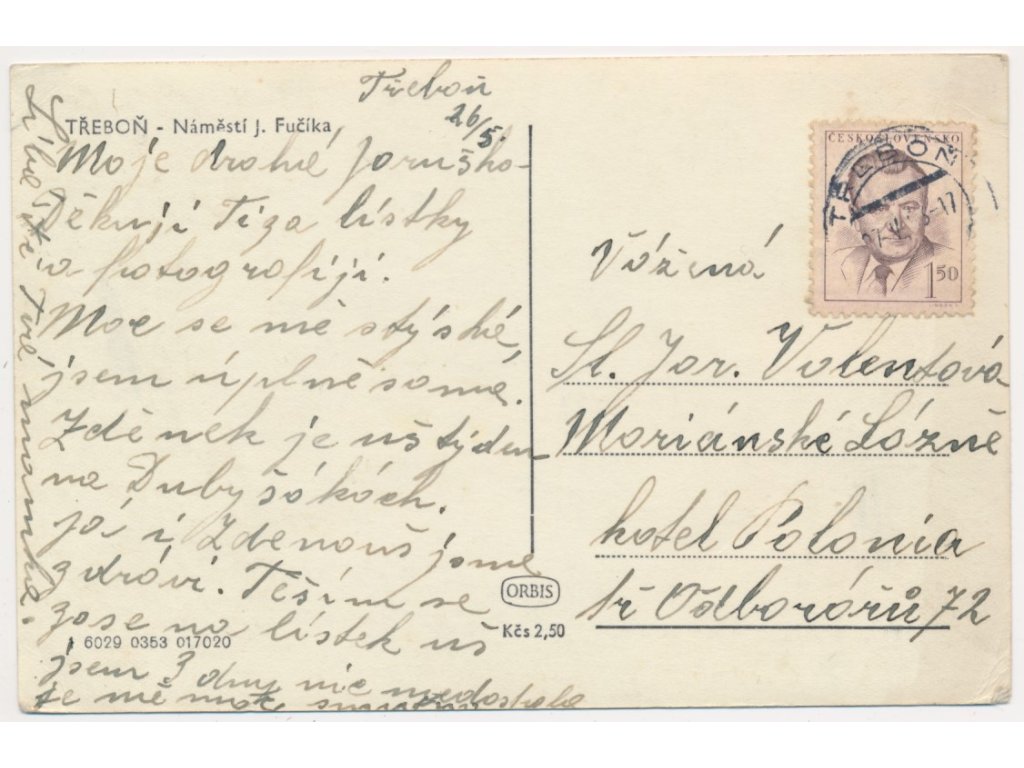 Třeboň
26/5.
TŘEBOŇ - Náměstí J. Fučíka
Moje drahé Jaruško-
Děkuji Ti za lístky
a fotografiji.
Moc se mě stýská,
jsem úplně sama.
Zděnek je uš týden
na Dubyšákách.
já i Zdenouš jsme
zdrávi. Těším se
zase na lístek uš
jsem 3 dny nic nedostala
je mě moc smutno
Líbá Tě Tvé mamka.
ČESKOSLOVENSKO
TŘEBOŇ
1 50
Vážená
Sl. Jar. Valentová
Mariánské Lázně
hotel Polonia
tř Odborářů 72
ORBIS
Kčs 2,50
1 6029 0353 017020